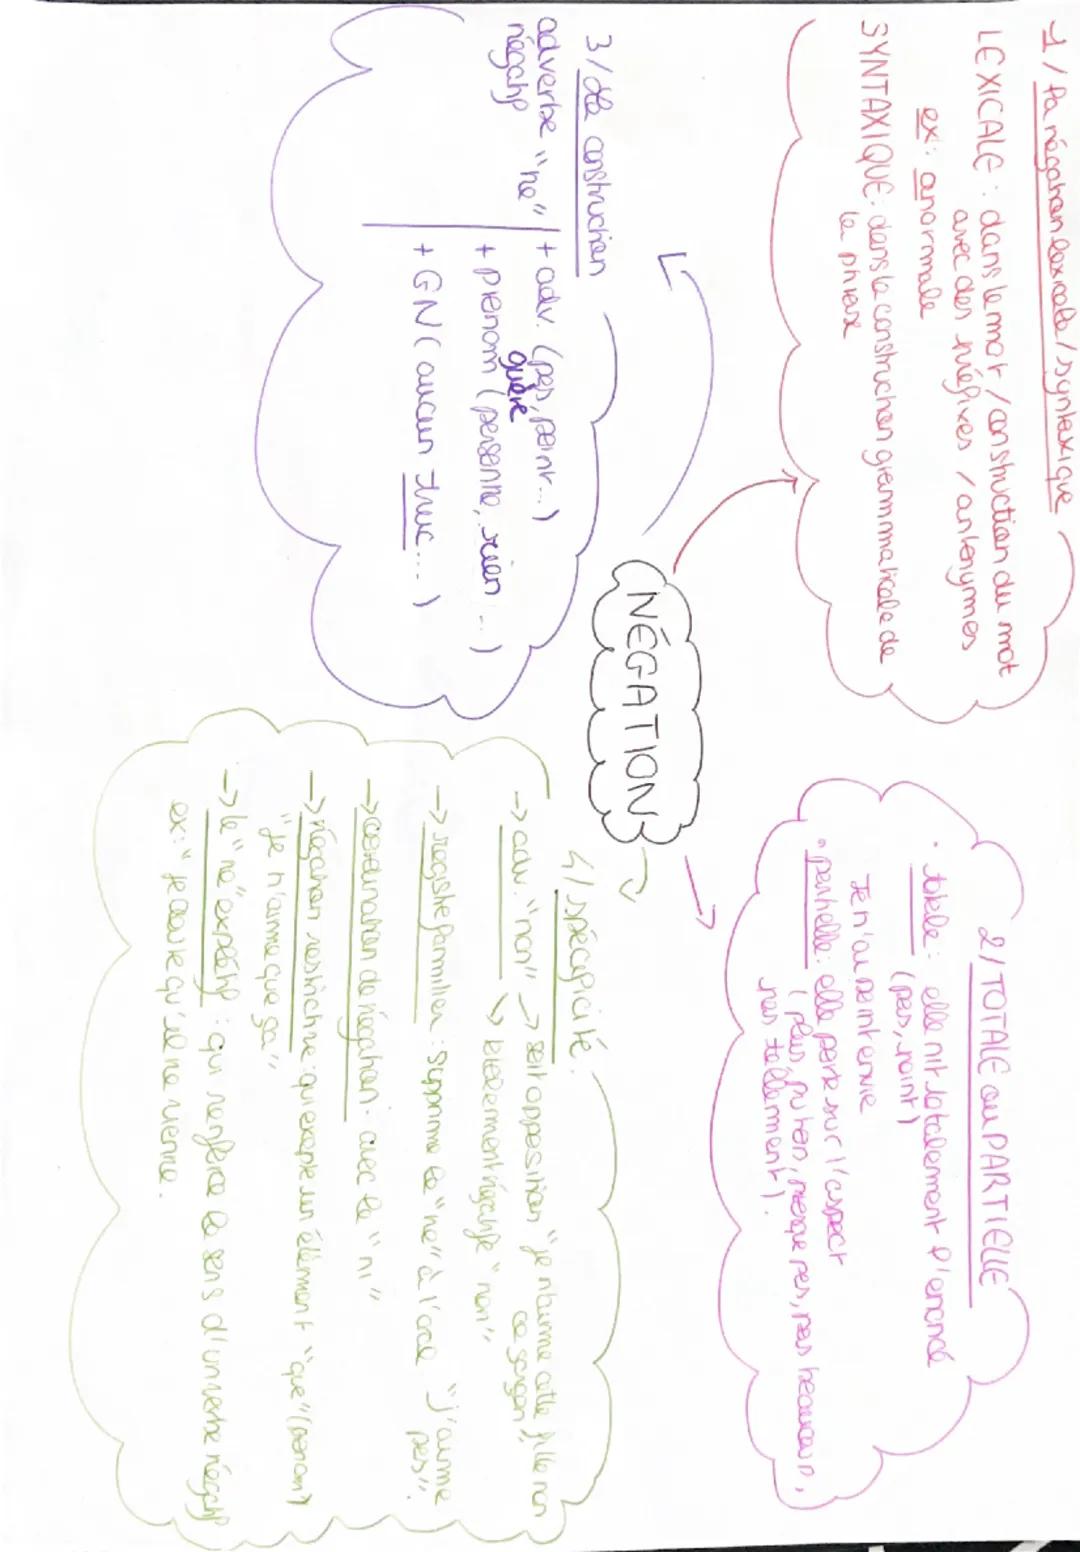 NÉGATION
1/ La négation lexicale / syntaxique
LEXICALE : dans le mot / construction du mot
avec des préfixes / antonymes
ex : anormale
SYNTAXIQUE : dans la construction grammaticale de
la phrase
2/ TOTALE ou PARTIELLE
• totale : elle nit totalement l'énoncé
(pas, point)
Je n'ai point envie
• partielle : elle porte sur l'aspect
(plus, ou rien, presque pas, pas beaucoup,
pas tellement).
3/ La construction
adverbe "ne" + adv. (pas, point...)
négatif
guère
+ pronom (personne, rien ...)
+ GN (aucun truc....)
4/ spécificité.
-> adv. "non" -> soit opposition "je n'aime cette fille non
ce garçon"
-> bièrement négatif "non"
-> registre familier : supprime le "ne" à l'oral "j'aime
pas".
-> coordination de négation : avec le "ni"
-> négation restrictive : qui excepte un élément "que" (pronom)
"je n'aime que ça"
-> le "ne" explétif : qui renforce le sens d'un verbe négatif
ex : "je doute qu'il ne vienne.